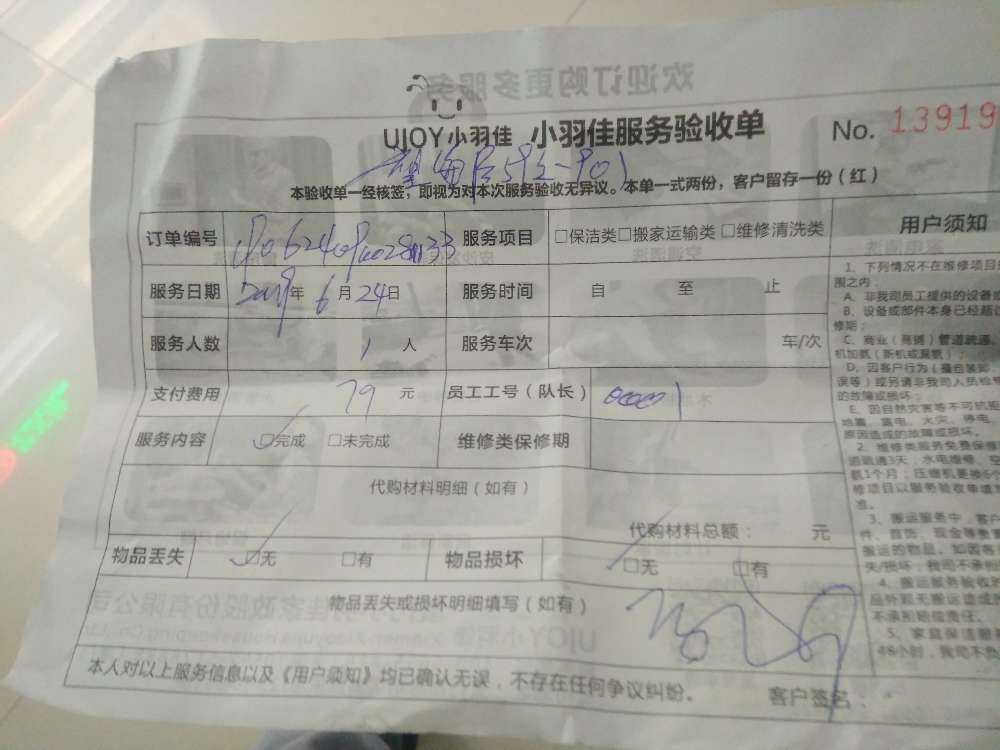 UJOY小羽佳 小羽佳服务验收单 No. 13919
本验收单一经核签，即视为对本次服务验收无异议。本单一式两份，客户留存一份（红）
订单编号 服务项目 □保洁类□搬家运输类 □维修清洗类
服务日期 2019年 6月24日 服务时间 自 至 止
服务人数 1 人 服务车次 车/次
支付费用 79 元 员工工号（队长）
服务内容 □完成 □未完成 维修类保修期
代购材料明细（如有）
代购材料总额： 元
物品丢失 □无 □有 物品损坏 □无 □有
物品丢失或损坏明细填写（如有）
本人对以上服务信息以及《用户须知》均已确认无误，不存在任何争议纠纷。 客户签名：
用户须知
1、下列情况不在维修项目
围之内：
A、非我司员工提供的设备
B、设备或部件本身已经超
修期；
C、商业（商铺）管道疏通、
机加氨（新机或漏氨）；
D、因客户行为（擅自装卸、
误等）或另请非我司人员检
的故障或损坏；
E、因自然灾害等不可抗
地震、雷电、火灾、停电、
原因造成的故障或损坏。
2、维修类服务免费保修
道疏通3天；水电维修、空
氨1个月；压缩机更换6个
修项目以服务验收单填写
准。
3、搬运服务中，客户
件、首饰、现金等贵重
搬运的物品，如因有
失/损坏，我司不承担
4、搬运服务验收
品外观无搬运造成
不承担赔偿责任。
5、家庭保洁服
48小时，我司不负